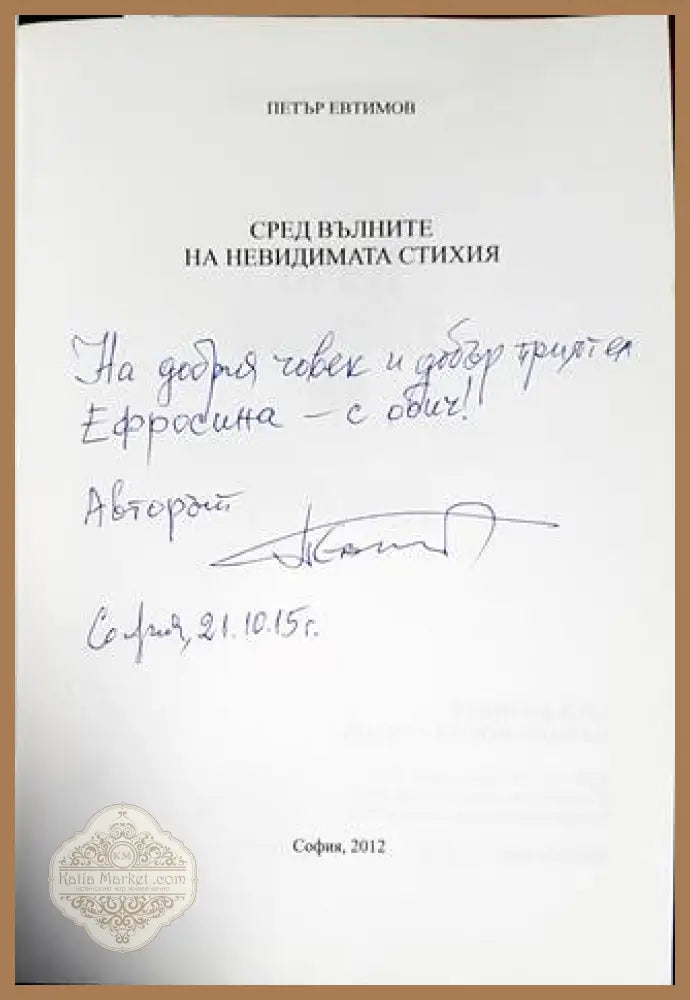 ПЕТЪР ЕВТИМОВ
СРЕД ВЪЛНИТЕ
НА НЕВИДИМАТА СТИХИЯ
На добрия човек и добър приятел
Ефросина – с обич!
Авторът
София, 21.10.15г.
София, 2012
KM
Katia Market .com